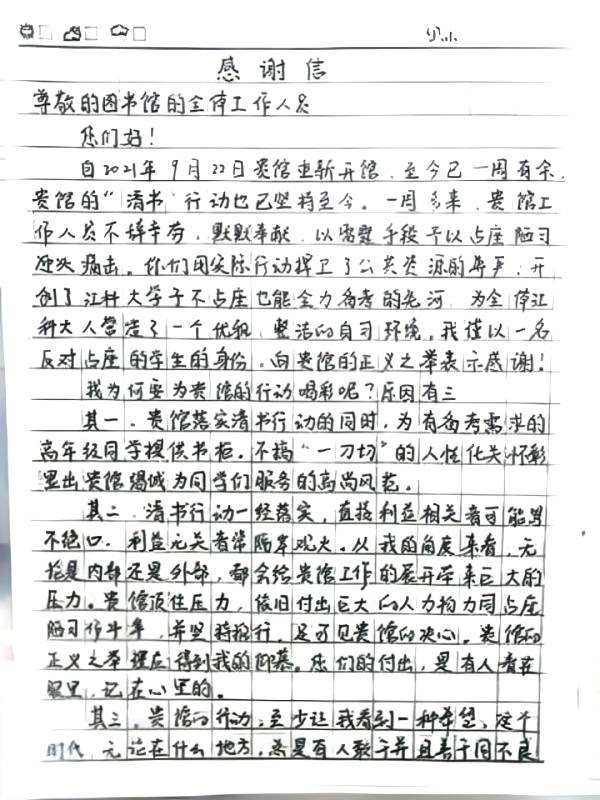 感谢信
尊敬的图书馆的全体工作人员
您们好！
自2021年9月22日贵馆重新开馆，至今已一周有余，
贵馆的“清书”行动也已坚持至今。一周多来，贵馆工
作人员不辞辛劳，默默奉献，以雷霆手段予以占座陋习
迎头痛击。你们用实际行动捍卫了公共资源的尊严，开
创了江科大学子不占座也能全力备考的先河，为全体江
科大人营造了一个优积、整洁的自习环境。我谨以一名
反对占座的学生的身份，向贵馆的正义之举表示感谢！
我为何要为贵馆的行动喝彩呢？原因有三
其一、贵馆落实清书行动的同时，为有备考需求的
高年级同学提供书柜。不搞“一刀切”的人性化关怀彰
显出贵馆竭诚为同学们服务的高尚风范。
其二、清书行动一经落实，直接利益相关者可能骂
不绝口，利益无关者常隔岸观火。从我的角度来看，无
论是内部还是外部，都会给贵馆工作的展开带来巨大的
压力。贵馆顶住压力，依旧付出巨大的人力物力同占座
陋习作斗争，并坚持执行，足可见贵馆的决心。贵馆的
正义之举理应得到我的仰慕。您们的付出，是有人看在
眼里，记在心里的。
其三、贵馆的行动，至少让我看到一种希望、这个
时代，无论在什么地方，总是有人敢于并且善于同不良